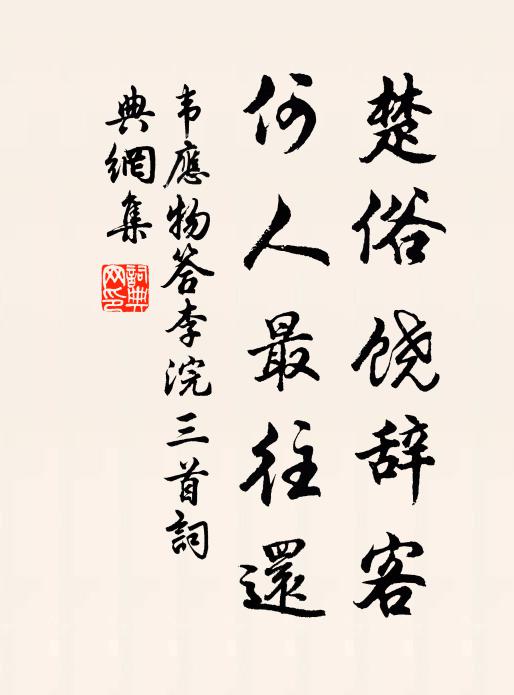 楚俗饶辞客
何人最往還
韦應物答李浣三首詞
典網集
詞典
网印